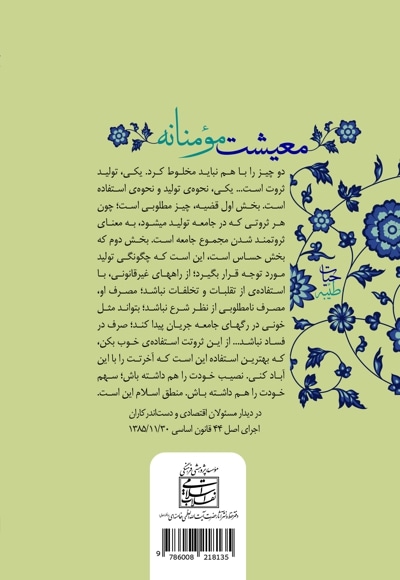 معیشت مؤمنانه
دو چیز را با هم نباید مخلوط کرد. یکی، تولید
ثروت است... یکی، نحوه‌ی تولید و نحوه‌ی استفاده
است. بخش اول قضیه، چیز مطلوبی است؛ چون
هر ثروتی که در جامعه تولید میشود، به معنای
ثروتمند شدن مجموع جامعه است. بخش دوم که
بخش حساس است، این است که چگونگی تولید
مورد توجه قرار بگیرد؛ از راههای غیرقانونی، با
استفاده‌ی از تقلبات و تخلفات نباشد؛ مصرف او،
مصرف نامطلوبی از نظر شرع نباشد؛ بتواند مثل
خونی در رگهای جامعه جریان پیدا کند؛ صرف در
فساد نباشد... از این ثروتت استفاده‌ی خوب بکن،
که بهترین استفاده این است که آخرتت را با این
آباد کنی. نصیب خودت را هم داشته باش؛ سهم
خودت را هم داشته باش. منطق اسلام این است.
در دیدار مسئولان اقتصادی و دست‌اندرکاران
اجرای اصل ۴۴ قانون اساسی ۱۳۸۵/۱۱/۳۰
حیات
طیبه
مؤسسه پژوهشی فرهنگی
انقلاب اسلامی
9 786008 218135